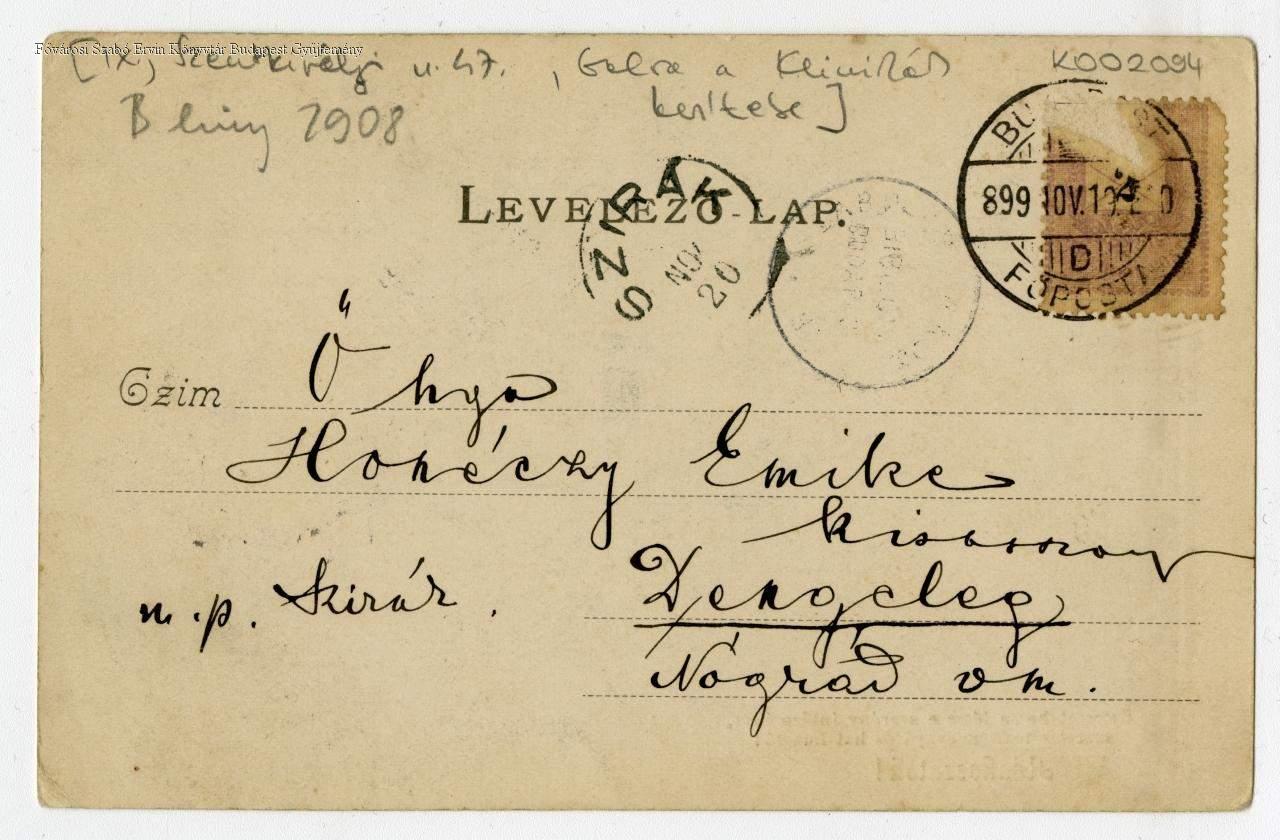 Fővárosi Szabó Ervin Könyvtár Budapest Gyűjtemény
[IX, Szentkirályi u. 47. , balra a Klinikák K002094
kerítése]
B 1908
LEVELEZŐ-LAP.
BUDAPEST
899 NOV. 19.
D
FŐPOSTA
SZIRÁK
NOV
20
Czim
Ő
Emike
kisasszony
u. p. Szirák.
Dengeleg
Nógrád vm.